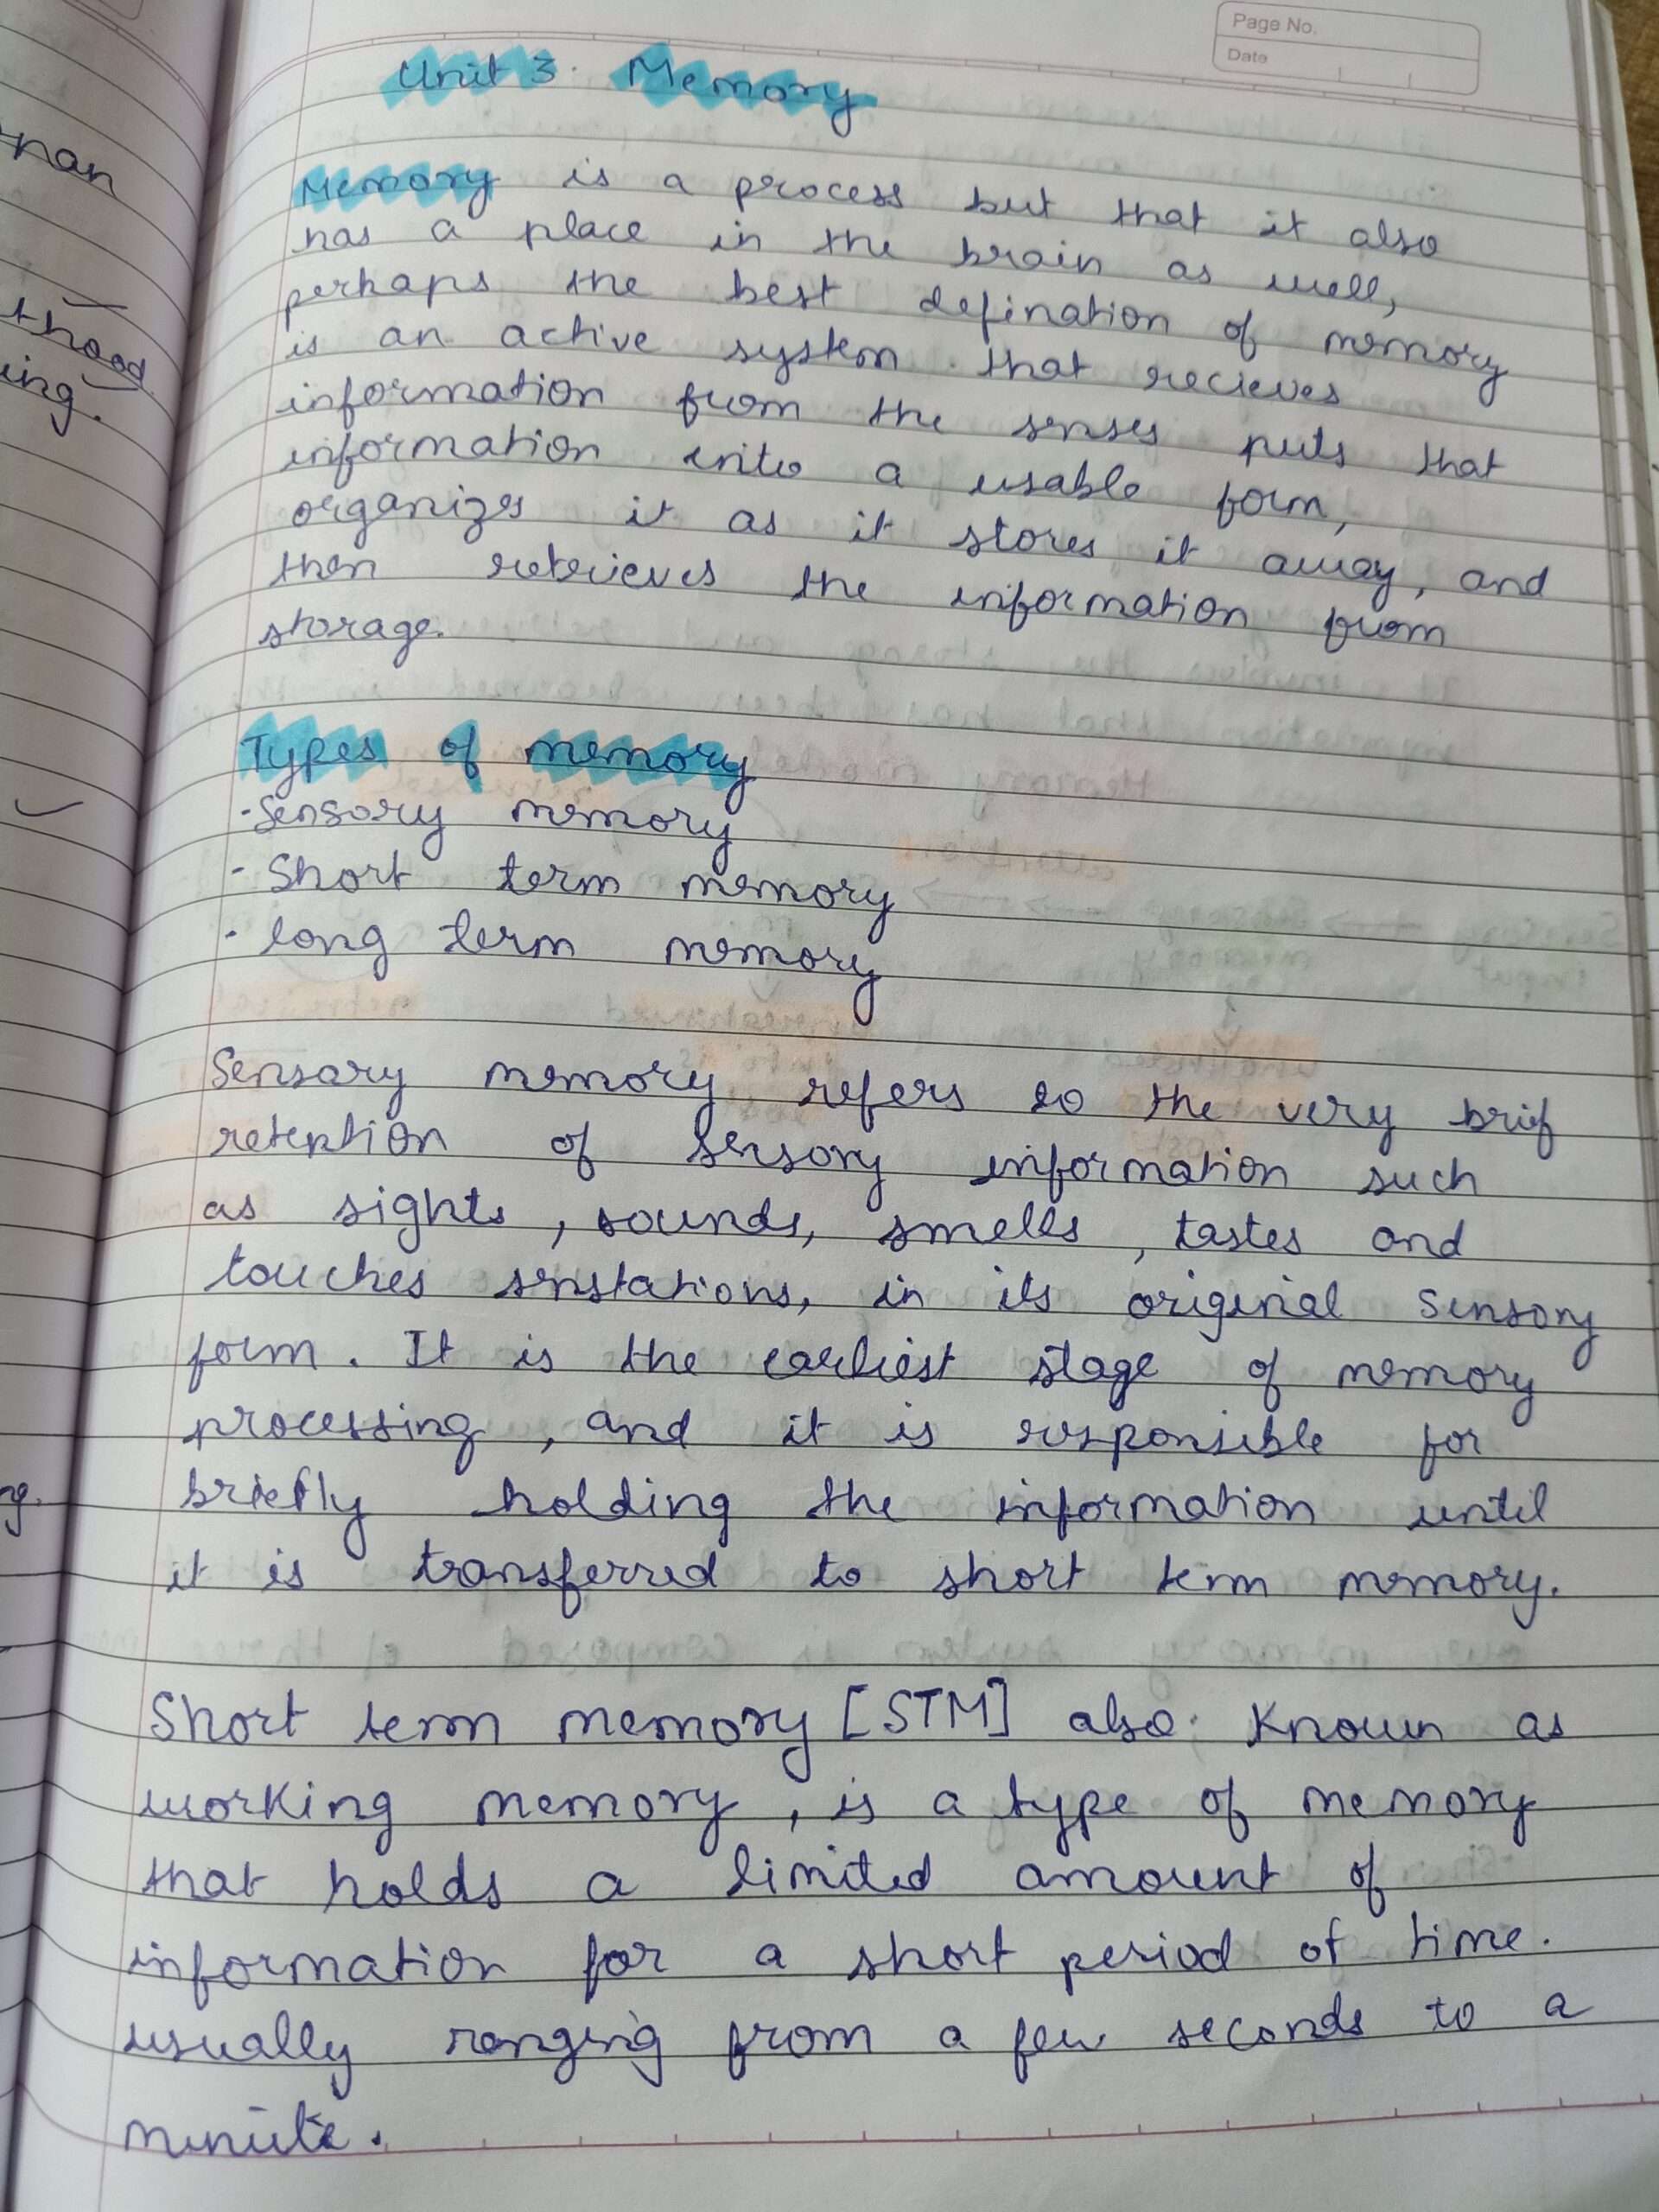 Page No.
Date
Unit 3. Memory
Memory is a process but that it also
has a place in the brain as well,
perhaps the best defination of memory
is an active system that recieves
information from the senses puts that
information into a usable form,
organizes it as it stores it away, and
then retrieves the information from
storage.
Types of memory
· Sensory memory
- Short term memory
· long term memory
Sensary memory refers to the very brief
retention of sensory information such
as sights, sounds, smells, tastes and
touches senstations, in its original sensory
form. It is the earliest stage of memory
processing, and it is responsible for
briefly holding the information until
it is transferred to short term memory.
Short term memory [STM] also known as
working memory, is a type of memory
that holds a limited amount of
information for a short period of time.
usually ranging from a few seconds to a
minute.